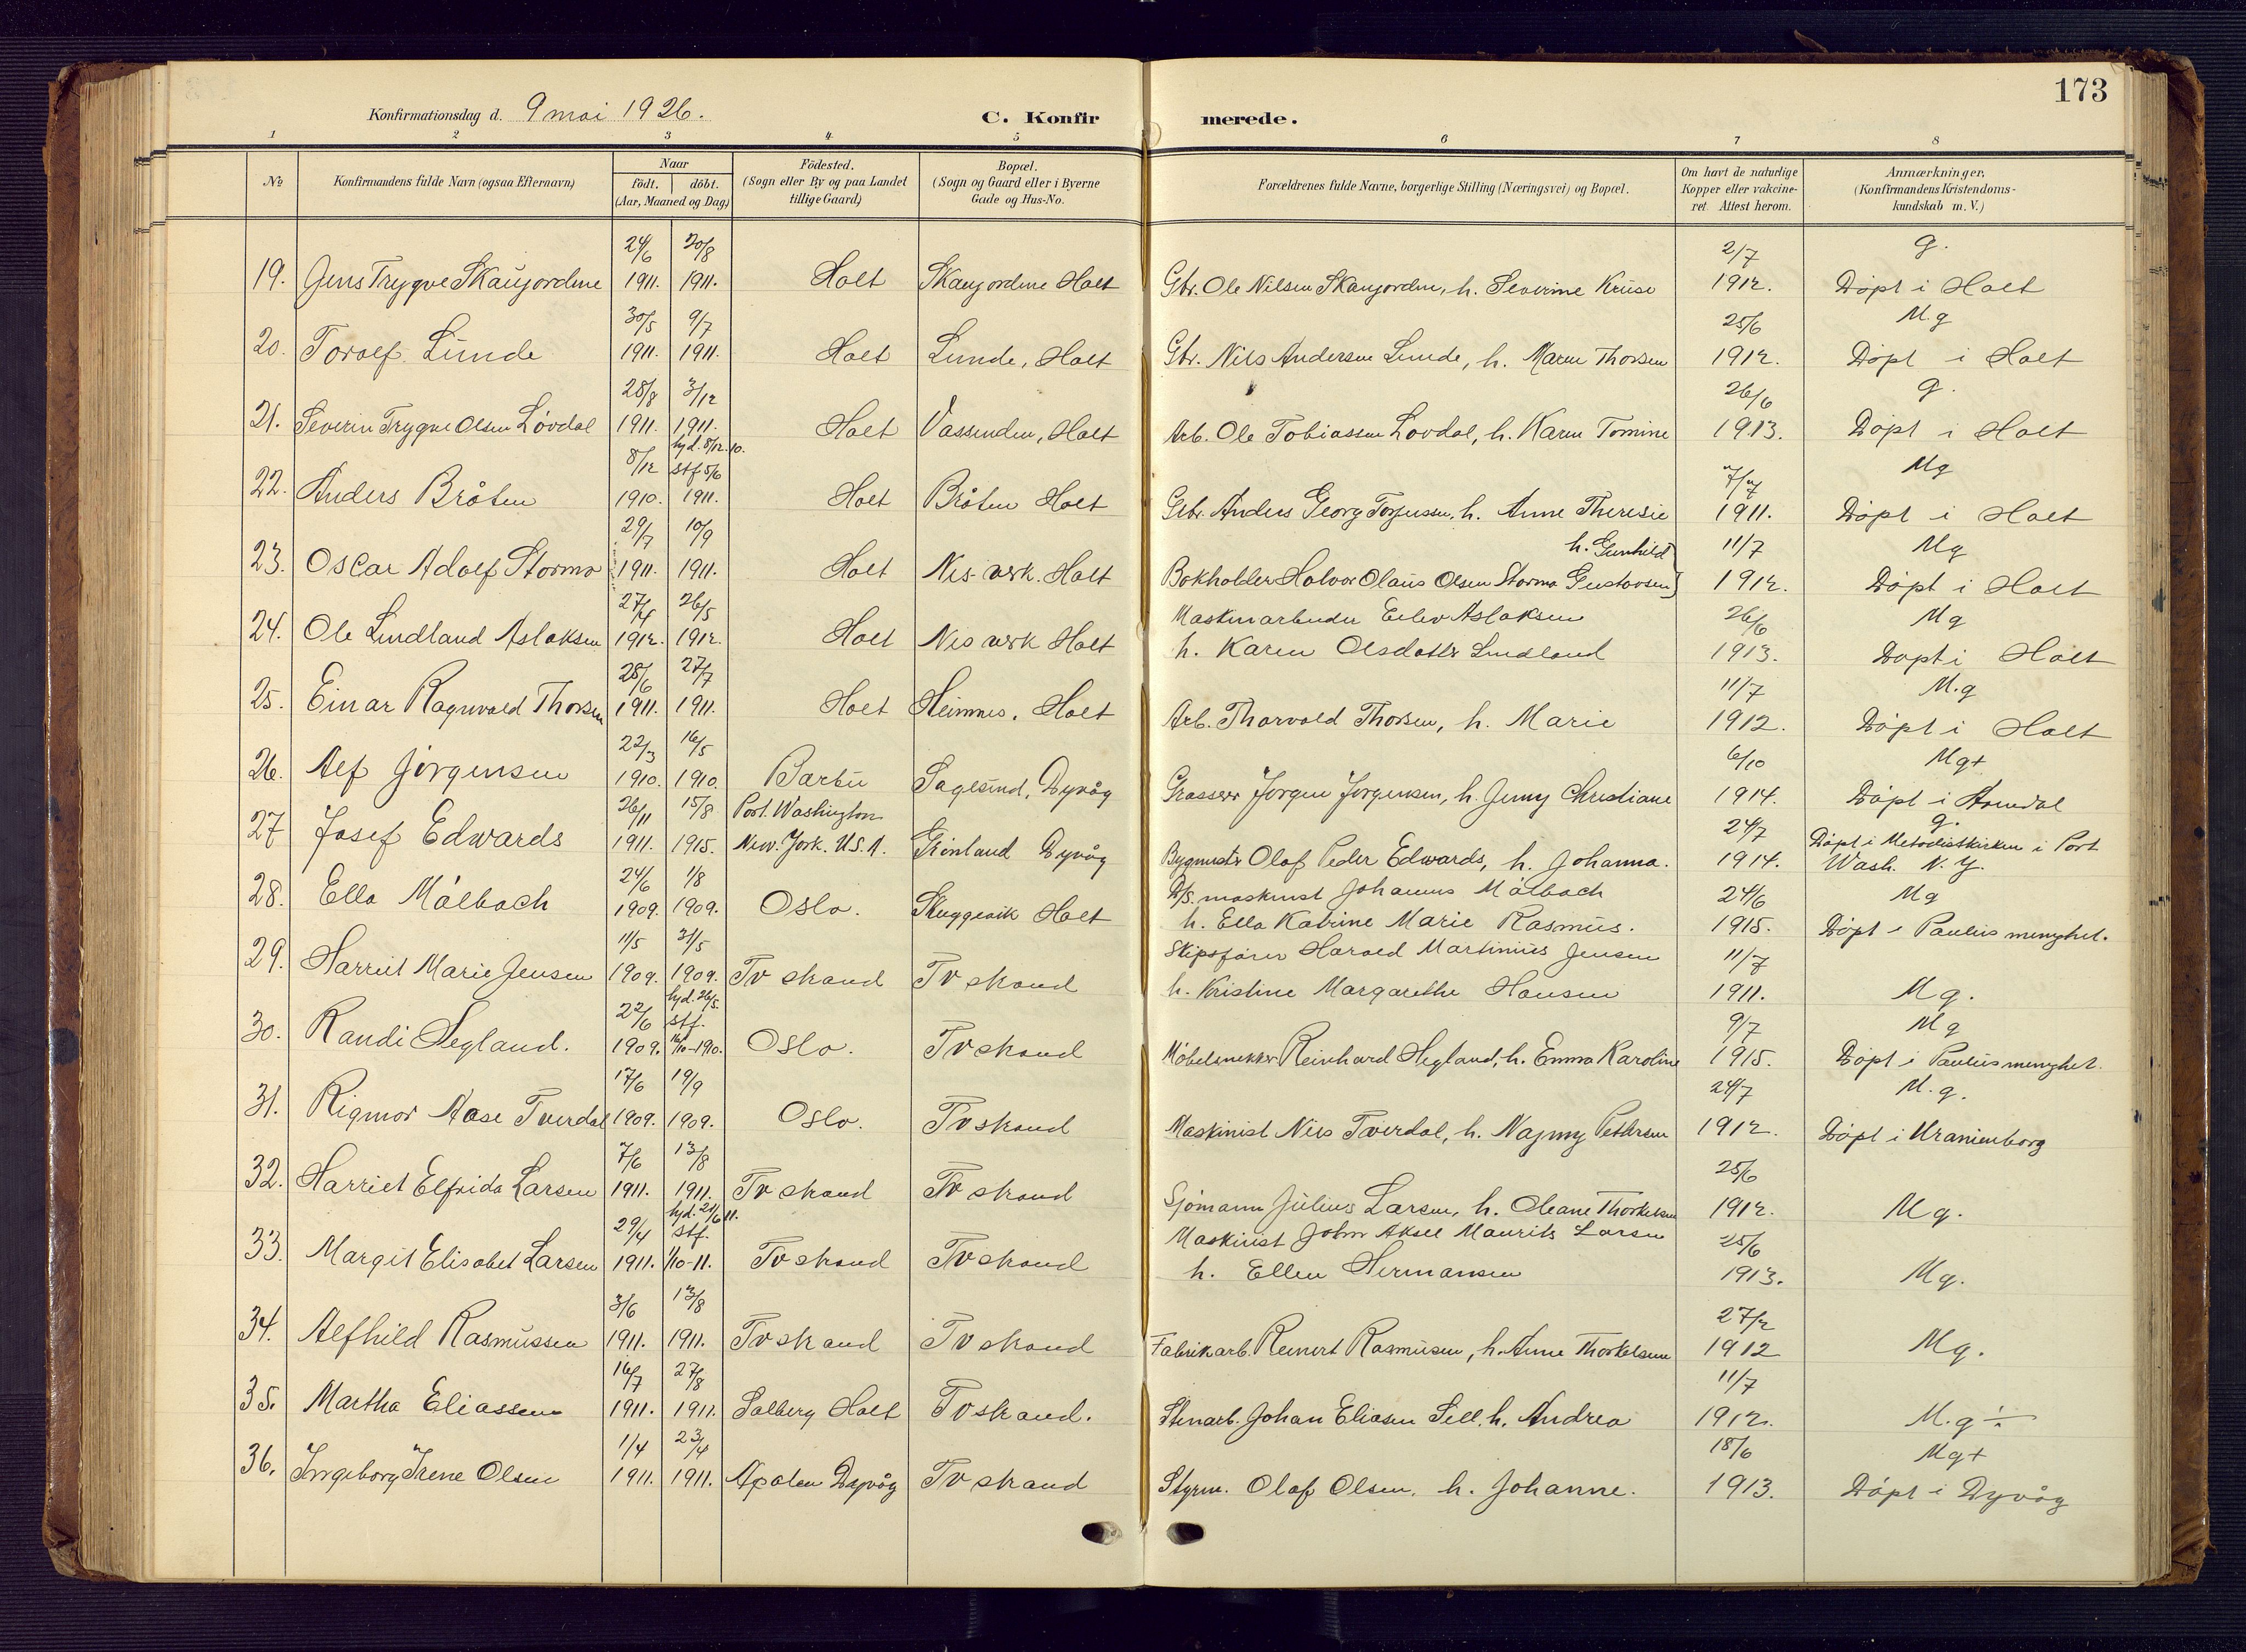 173
Konfirmationsdag d. 9 mai 1926.
C. Konfirmerede.
1 2 3 4 5 6 7 8
No
Konfirmandens fulde Navn (ogsaa Efternavn)
Naar
födt. döbt.
(Aar, Maaned og Dag)
Födested.
(Sogn eller By og paa Landet
tillige Gaard)
Bopæl.
(Sogn og Gaard eller i Byerne
Gade og Hus-No.
Forældrenes fulde Navne, borgerlige Stilling (Næringsvei) og Bopæl.
Om havt de naturlige
Kopper eller vakcine-
ret Attest herom.
Anmærkninger.
(Konfirmandens Kristendoms-
kundskab m. V.)
24/6 20/8 2/7 g.
19. Jens Trygve Skaujordene 1911. 1911. Holt Skaujordene Holt Gbr. Ole Nilsen Skaujorden, h. Severine Kruse 1912. Døpt i Holt
30/5 9/7 25/6 M.g
20. Toralf Lunde 1911. 1911. Holt Lunde, Holt Gbr. Nils Andersen Lunde, h. Maren Thorsen 1912. Døpt i Holt
28/8 3/12 26/6 g.
21. Severin Trygve Olsen Løvdal 1911. 1911. Holt Vassenden, Holt Arb. Ole Tobiassen Løvdal, h. Karen Tomine 1913. Døpt i Holt
8/12 hjd. 8/12.10. stf 5/6 7/7 Mg
22. Anders Bråten 1910. 1911. Holt Bråten Holt Gbr. Anders Georg Torjussen, h. Anne Theresie 1911. Døpt i Holt
29/7 10/9 h. Gunhild 11/7 Mg
23. Oscar Adolf Stormo 1911. 1911. Holt Nes verk. Holt Bokholder Halvor Olaus Olsen Stormo Gustavsen 1912. Døpt i Holt
27/4 26/5 Maskinarbeider Eilev Aslaksen 26/6 Mg
24. Ole Lindland Aslaksen 1912. 1912. Holt Nes verk Holt h. Karen Olsdatter Lindland 1913. Døpt i Holt
28/6 27/7 11/7 M.g
25. Einar Ragnvald Thorsen 1911. 1911. Holt Heimnes, Holt Arb. Thorvald Thorsen, h. Marie 1912. Døpt i Holt
22/3 16/5 6/10 Mg+
26. Alf Jørgensen 1910. 1910. Barbu Sagesund, Dypvåg Grosserer Jørgen Jørgensen, h. Jenny Christiane 1914. Døpt i Arendal
26/11 15/8 Port. Washington 24/7 g.
27 Josef Edwards 1911. 1915. New. York. U.S.A. Grønland Dypvåg Bygmester Olaf Peder Edwards, h. Johanna. 1914. Døpt i Metodistkirken i Port Wash. N.Y.
24/6 1/8 D/S. maskinist Johannes Målbach 24/6 Mg
28. Ella Målbach 1909. 1909. Oslo. Skuggevik Holt h. Ella Katrine Marie Rasmus. 1915. Døpt i Paulus menighet.
11/5 31/5 Skipsfører Harald Martinius Jensen 11/7
29. Harriet Marie Jensen 1909. 1909. Tvstrand Tvstrand h. Kristine Margarethe Hansen 1911. Mg.
22/6 hjd. 26/5. stf. 9/7 Mg
30. Randi Hegland. 1909. 16/10-1910. Oslo. Tvstrand Møbelsnekker Reinhard Hegland, h. Emma Karoline 1915. Døpt i Paulus menighet.
17/6 19/9 24/7 M.g.
31. Rigmor Aase Tverdal 1909. 1909. Oslo. Tvstrand Maskinist Nils Tverdal, h. Nagny Pettersen 1912. Døpt i Uranienborg
7/6 13/8 25/6
32. Harriet Elfrida Larsen 1911. 1911. Tvstrand Tvstrand Sjømann Julius Larsen, h. Oleane Thorkelsen 1912. Mg.
29/4 hjd. 21/6 11. stf. Maskinist John Aksel Maurits Larsen 25/6
33. Margit Elisabet Larsen 1911. 1/10-11. Tvstrand Tvstrand h. Ellen Hermansen 1913. Mg.
3/6 13/8 27/2
34. Alfhild Rasmussen 1911. 1911. Tvstrand Tvstrand Fabrikarb. Reinert Rasmussen, h. Anne Thorkelsen 1912 Mg.
16/7 27/8 11/7
35. Martha Eliassen 1911. 1911. Solberg Holt Tvstrand. Stenarb. Johan Eliasen Sell. h. Andrea 1912. M.g ÷
1/4 23/4 18/6 Mg+
36. Ingeborg Irene Olsen 1911. 1911. Dypvåg Tvstrand Styrm. Olaf Olsen, h. Johanne. 1913. Døpt i Dypvåg